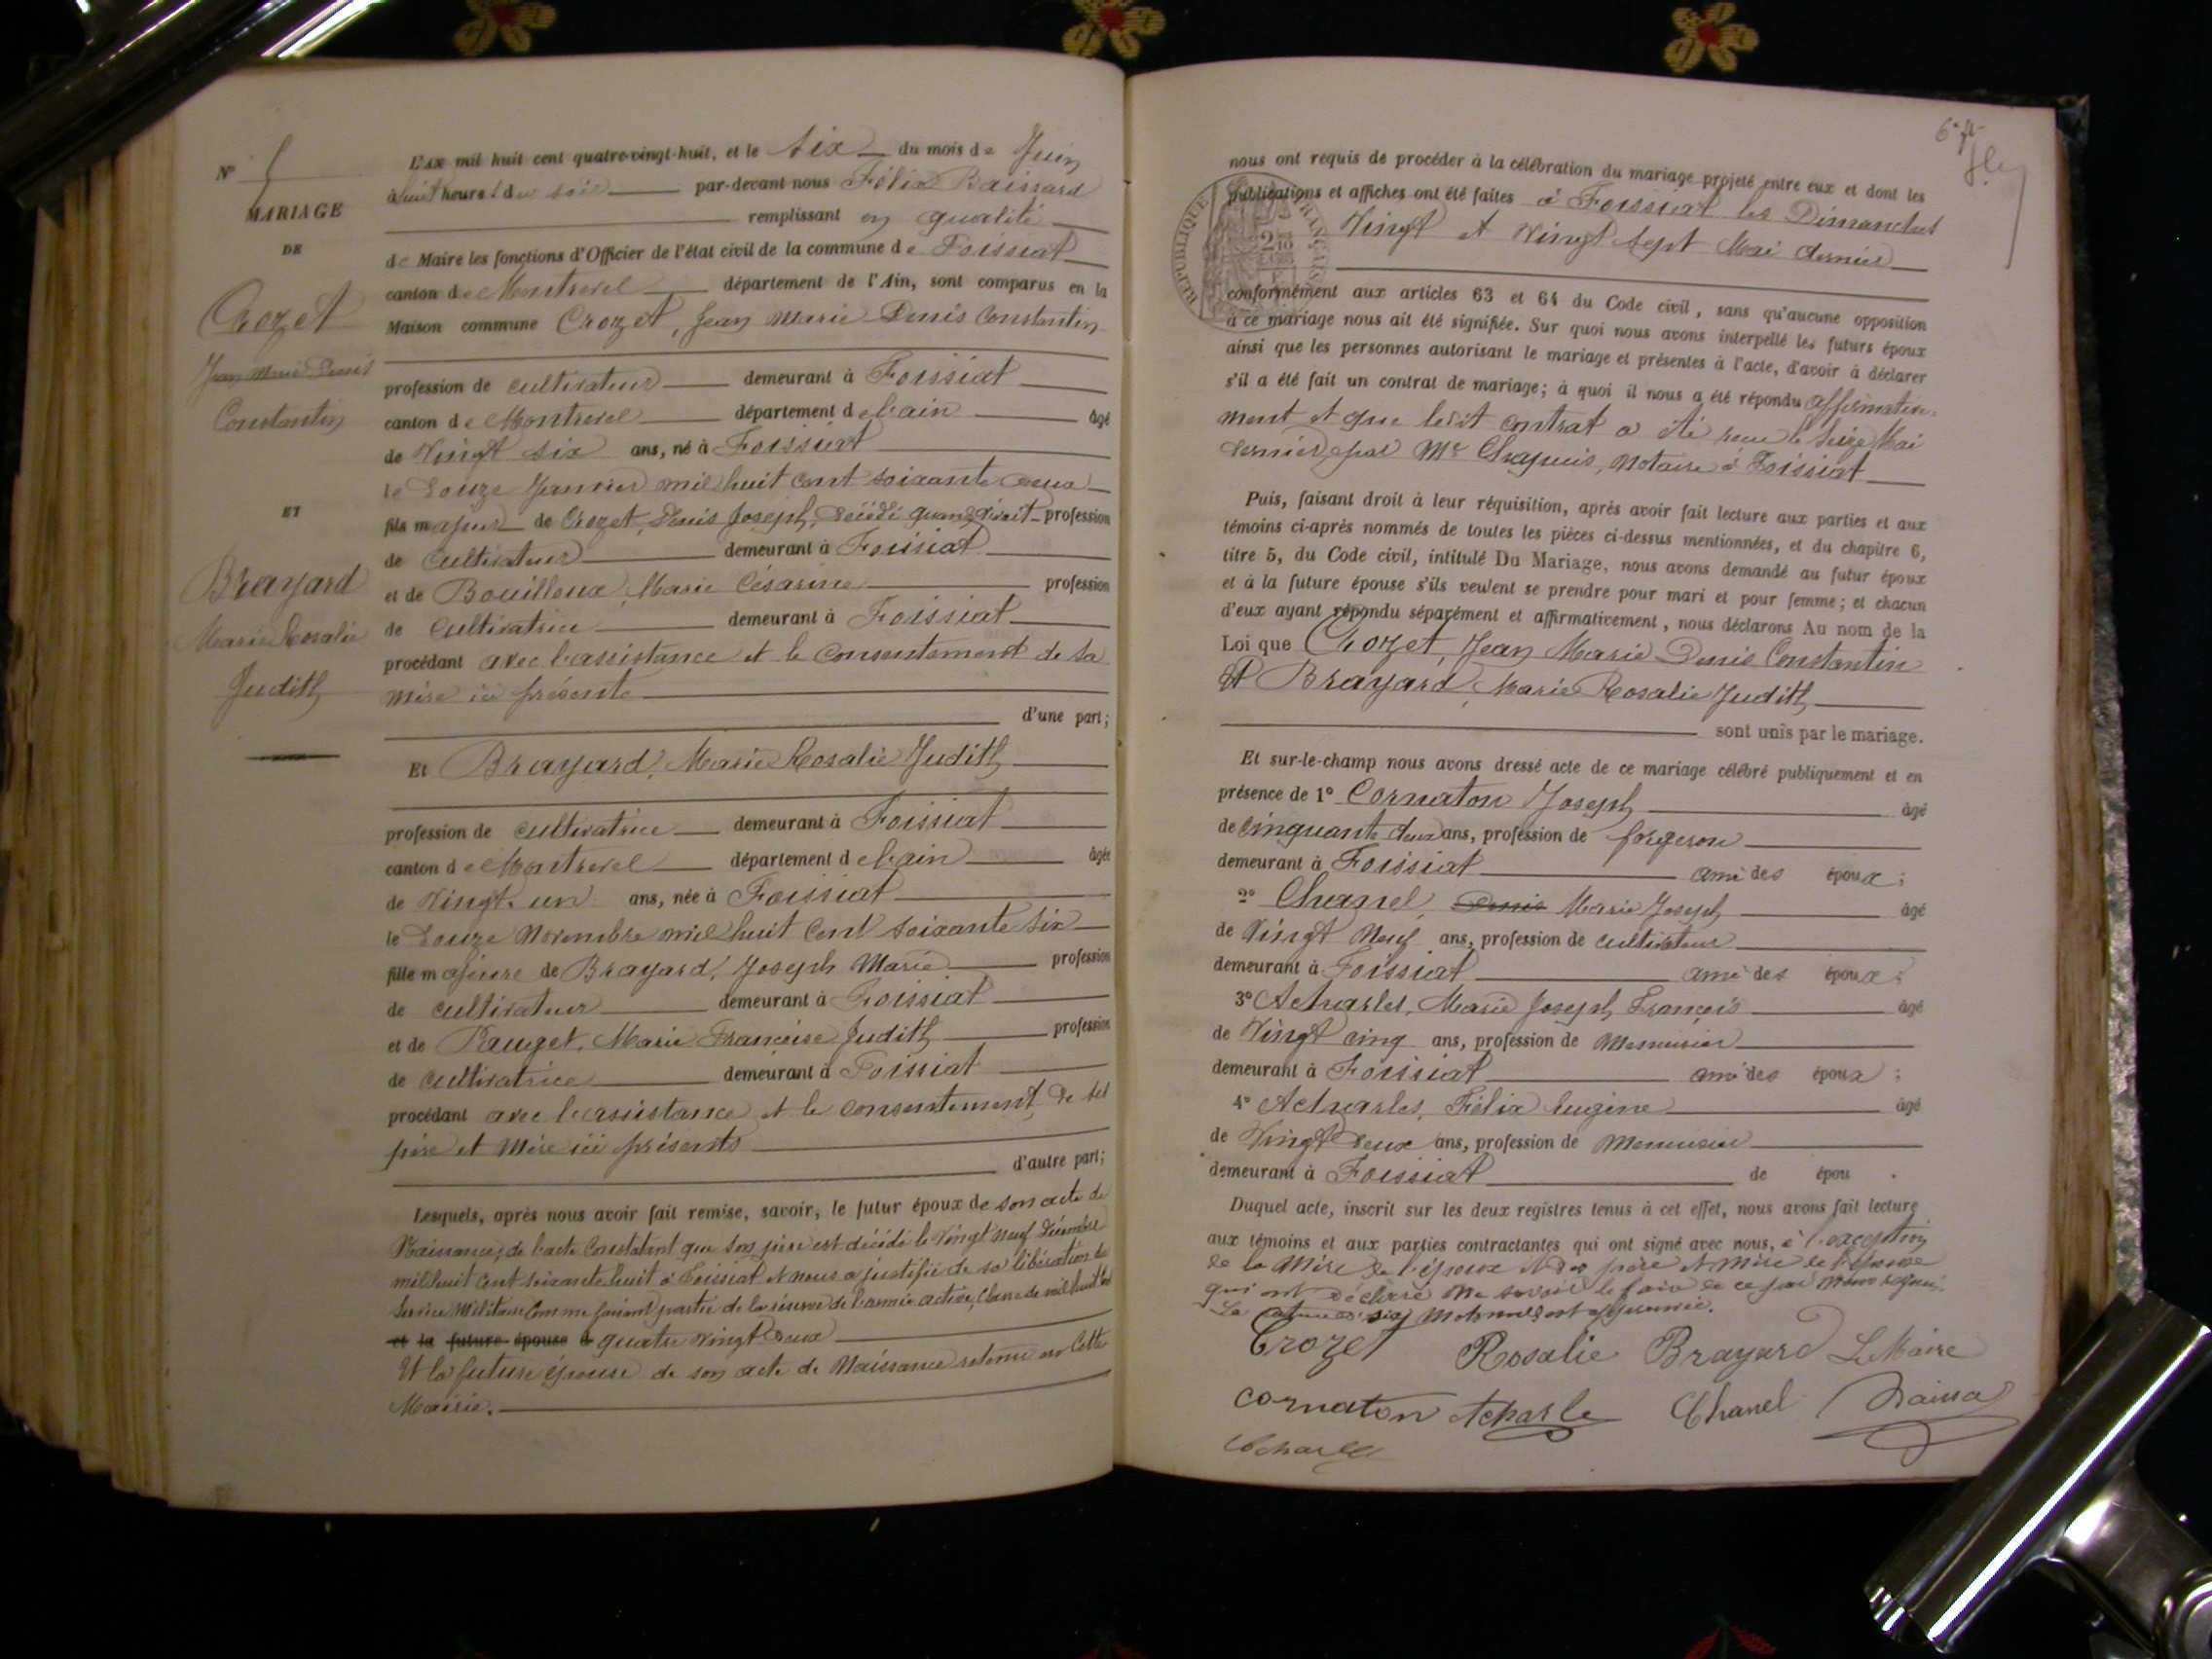 N°
MARIAGE
DE
Crozet
Jean Marie Denis
Constantin
ET
Brayard
Marie Rosalie
Judith
L'AN mil huit cent quatre-vingt-huit, et le Six du mois de Juin
à huit heures du soir par-devant nous Félix Baissard
remplissant en qualité
de Maire les fonctions d'Officier de l'état civil de la commune de Foissiat
canton de Montrevel département de l'Ain, sont comparus en la
Maison commune Crozet, Jean Marie Denis Constantin
profession de cultivateur demeurant à Foissiat
canton de Montrevel département de l'ain âgé
de Vingt six ans, né à Foissiat
le Douze Janvier mil huit cent soixante deux
fils majeur de Crozet Denis Joseph, décédé quand vivait profession
de cultivateur demeurant à Foissiat
et de Bouilloux, Marie Césarine profession
de Cultivatrice demeurant à Foissiat
procédant avec l'assistance et le consentement de sa
mère ici présente
d'une part;
Et Brayard, Marie Rosalie Judith
profession de cultivatrice demeurant à Foissiat
canton de Montrevel département de l'ain âgée
de Vingt un ans, née à Foissiat
le Douze Novembre mil huit Cent soixante six
fille majeure de Brayard, Joseph Marie profession
de cultivateur demeurant à Foissiat
et de Rauget, Marie Françoise Judith profession
de cultivatrice demeurant à Foissiat
procédant avec l'assistance et le consentement de ses
père et Mère ici présents
d'autre part;
Lesquels, après nous avoir fait remise, savoir, le futur époux de son acte de
Naissance; de l'acte Constatant que son père est décédé le Vingt neuf Décembre
mil huit Cent soixante huit à Foissiat et nous a justifié de sa libération du
Service Militaire Comme faisant partie de la réserve de l'armée active, Classe de mil huit Cent
et la future épouse d quatre vingt deux
Et la future épouse de son acte de Naissance retenu en Cette
Mairie.
6e f.
nous ont requis de procéder à la célébration du mariage projeté entre eux et dont les
publications et affiches ont été faites à Foissiat les Dimanches
Vingt et Vingt sept Mai dernier
RÉPUBLIQUE FRANÇAISE
conformément aux articles 63 et 64 du Code civil, sans qu'aucune opposition
à ce mariage nous ait été signifiée. Sur quoi nous avons interpellé les futurs époux
ainsi que les personnes autorisant le mariage et présentes à l'acte, d'avoir à déclarer
s'il a été fait un contrat de mariage; à quoi il nous a été répondu affirmative-
ment et que ledit contrat a été reçu le Seize Mai
dernier par Me Chapuis, Notaire à Foissiat
Puis, faisant droit à leur réquisition, après avoir fait lecture aux parties et aux
témoins ci-après nommés de toutes les pièces ci-dessus mentionnées, et du chapitre 6,
titre 5, du Code civil, intitulé Du Mariage, nous avons demandé au futur époux
et à la future épouse s'ils veulent se prendre pour mari et pour femme; et chacun
d'eux ayant répondu séparément et affirmativement, nous déclarons Au nom de la
Loi que Crozet, Jean Marie Denis Constantin
Et Brayard, Marie Rosalie Judith
sont unis par le mariage.
Et sur-le-champ nous avons dressé acte de ce mariage célébré publiquement et en
présence de 1° Cornaton Joseph âgé
de Cinquante deux ans, profession de forgeron
demeurant à Foissiat ami des époux;
2° Chanel, Denis Marie Joseph âgé
de Vingt Neuf ans, profession de cultivateur
demeurant à Foissiat ami des époux;
3° Acharles, Marie Joseph François âgé
de Vingt cinq ans, profession de Menuisier
demeurant à Foissiat ami des époux;
4° Acharles, Félix Eugène âgé
de Vingt deux ans, profession de Menuisier
demeurant à Foissiat de épou .
Duquel acte, inscrit sur les deux registres tenus à cet effet, nous avons fait lecture
aux témoins et aux parties contractantes qui ont signé avec nous, à l'exception
de la Mère de l'époux et des père et Mère de l'épouse
qui ont déclaré Ne savoir le faire de ce par Nous requis.
La six Mots nuls est approuvée.
Crozet Rosalie Brayard Le Maire
cornaton Acharle Chanel Baissa
Acharle